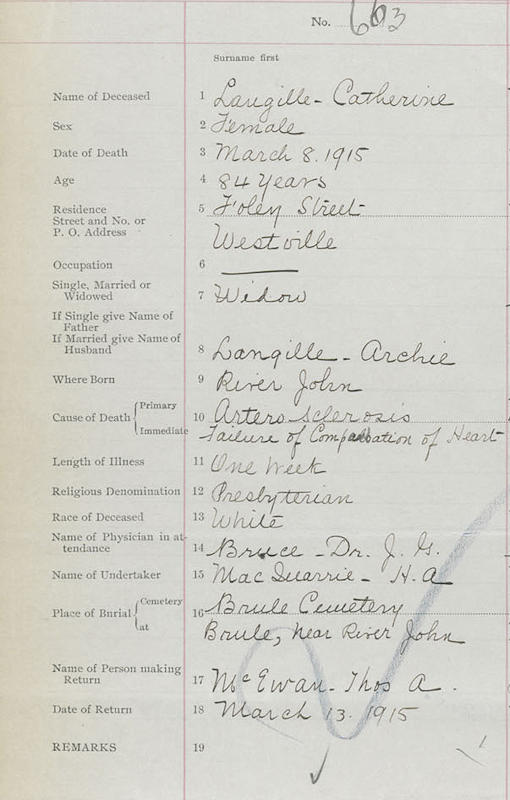 No. 663
Surname first
Name of Deceased 1 Langille - Catherine
Sex 2 Female
Date of Death 3 March 8. 1915
Age 4 84 Years
Residence 5 Foley Street
Street and No. or
P. O. Address Westville
Occupation 6 ———
Single, Married or
Widowed 7 Widow
If Single give Name of
Father
If Married give Name of
Husband 8 Langille - Archie
Where Born 9 River John
Cause of Death { Primary 10 Artero Sclerosis
Immediate Failure of of Heart
Length of Illness 11 One Week
Religious Denomination 12 Presbyterian
Race of Deceased 13 White
Name of Physician in at-
tendance 14 Bruce - Dr. J. G.
Name of Undertaker 15 MacQuarrie - H. A
Place of Burial { Cemetery 16 Brule Cemetery
at Brule, near River John
Name of Person making
Return 17 McEwan - Thos A.
Date of Return 18 March 13. 1915
REMARKS 19